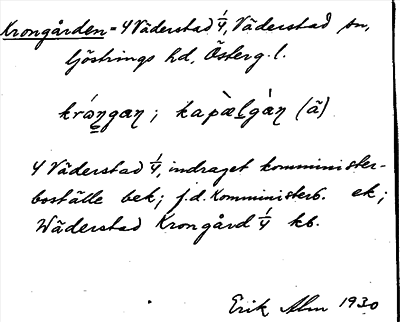 Krongården = 4 Väderstad 1/4, Väderstad sn,
Göstrings hd, Österg. l.
krángan; kapàlgàn (ä)
4 Väderstad 1/4, indraget komminister-
boställe bek; f.d. Komministerb. ek;
Wäderstad Krongård 1/4 kb.
Erik Alm 1930